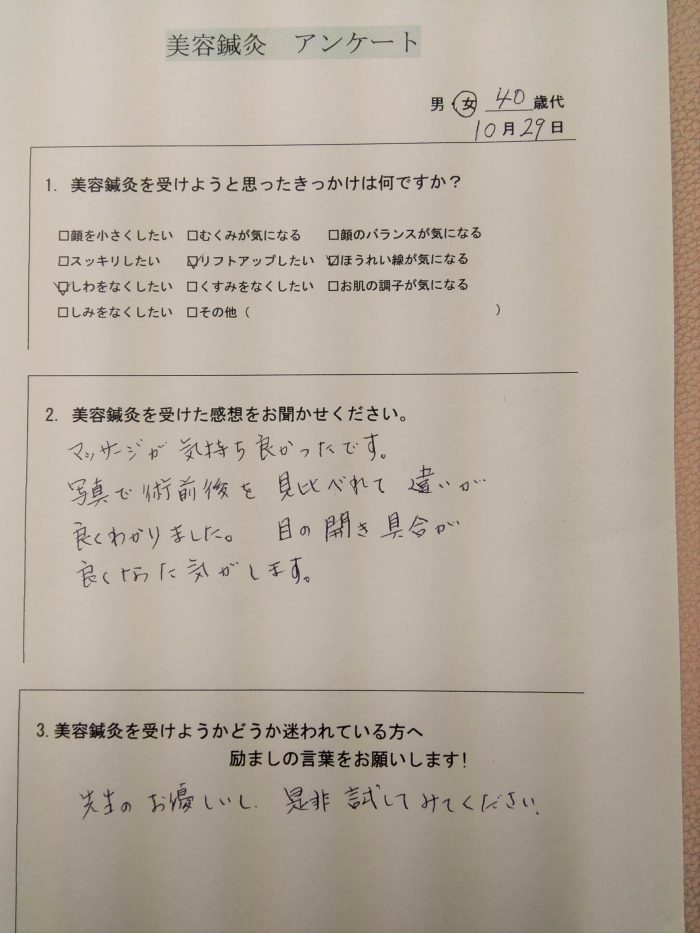 美容鍼灸　アンケート
男・女 40 歳代
10月29日
1. 美容鍼灸を受けようと思ったきっかけは何ですか？
□顔を小さくしたい □むくみが気になる □顔のバランスが気になる
□スッキリしたい ☑リフトアップしたい ☑ほうれい線が気になる
☑しわをなくしたい □くすみをなくしたい □お肌の調子が気になる
□しみをなくしたい □その他（　　　）
2. 美容鍼灸を受けた感想をお聞かせください。
マッサージが気持ち良かったです。
写真で術前後を見比べれて違いが
良くわかりました。 目の開き具合が
良くなった気がします。
3.美容鍼灸を受けようかどうか迷われている方へ
励ましの言葉をお願いします!
先生のお優しいし、是非試してみてください。